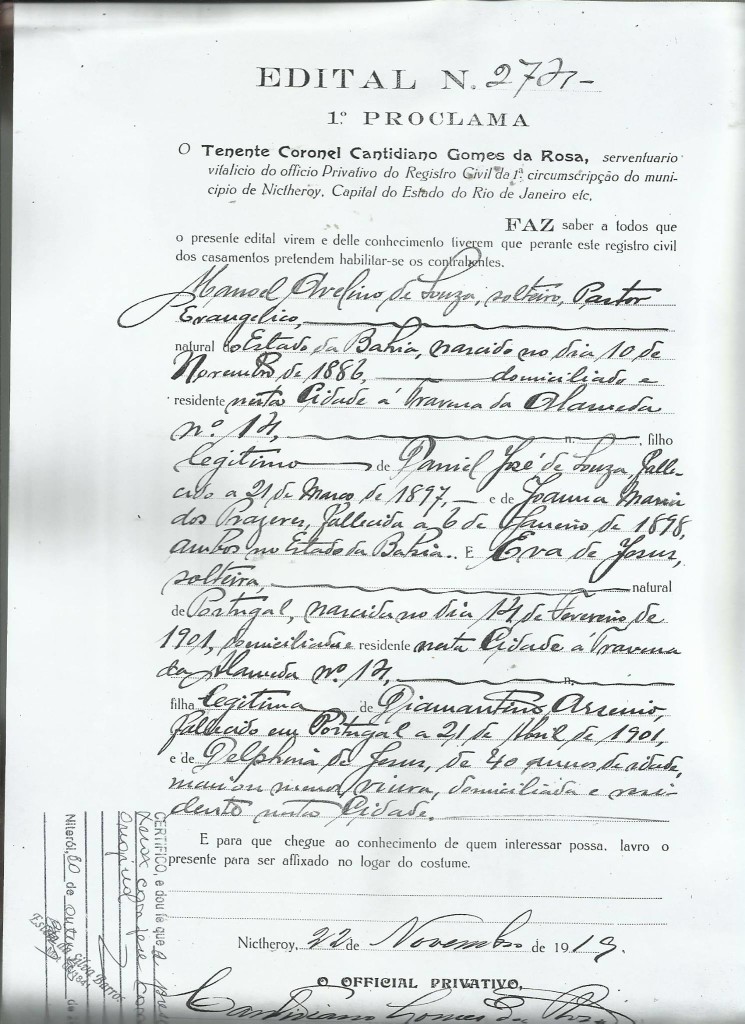 EDITAL N. 271-
1º PROCLAMA
O Tenente Coronel Cantidiano Gomes da Rosa, serventuario
vitalicio do officio Privativo do Registro Civil da 1ª circumscripção do muni-
cipio de Nictheroy, Capital do Estado do Rio de Janeiro etc,
FAZ saber a todos que
o presente edital virem e delle conhecimento tiverem que perante este registro civil
dos casamentos pretendem habilitar-se os contrahentes.
Manoel Avelino de Souza, solteiro, Pastor
Evangelico,
natural do Estado da Bahia, nascido no dia 10 de
Novembro de 1886, domiciliado e
residente nesta Cidade á Travessa da Alameda
nº 14, n. , filho
legitimo de Daniel José de Souza, falle-
cido a 21 de Março de 1897, - e de Joanna Maria
dos Prazeres, fallecida a 6 de Janeiro de 1898,
ambos no Estado da Bahia.. E Eva de Jesus,
solteira, natural
de Portugal, nascida no dia 14 de Fevereiro de
1901, domiciliada e residente nesta Cidade á Travessa
da Alameda nº 14, n.
filha legitima de Diamantino Arsenio,
fallecido em Portugal a 21 de Abril de 1901,
e de Delphina de Jesus, de 40 annos de idade,
mais ou menos, viuva, domiciliada e resi-
dente nesta Cidade.
E para que chegue ao conhecimento de quem interessar possa, lavro o
presente para ser affixado no logar do costume.
Nictheroy, 22 de Novembro de 1919.
O OFFICIAL PRIVATIVO,
Cantidiano Gomes da Rosa
CERTIFICO, e dou fé que a
xerox com
original
Niterói, 20 de outubro de
Silva Barros